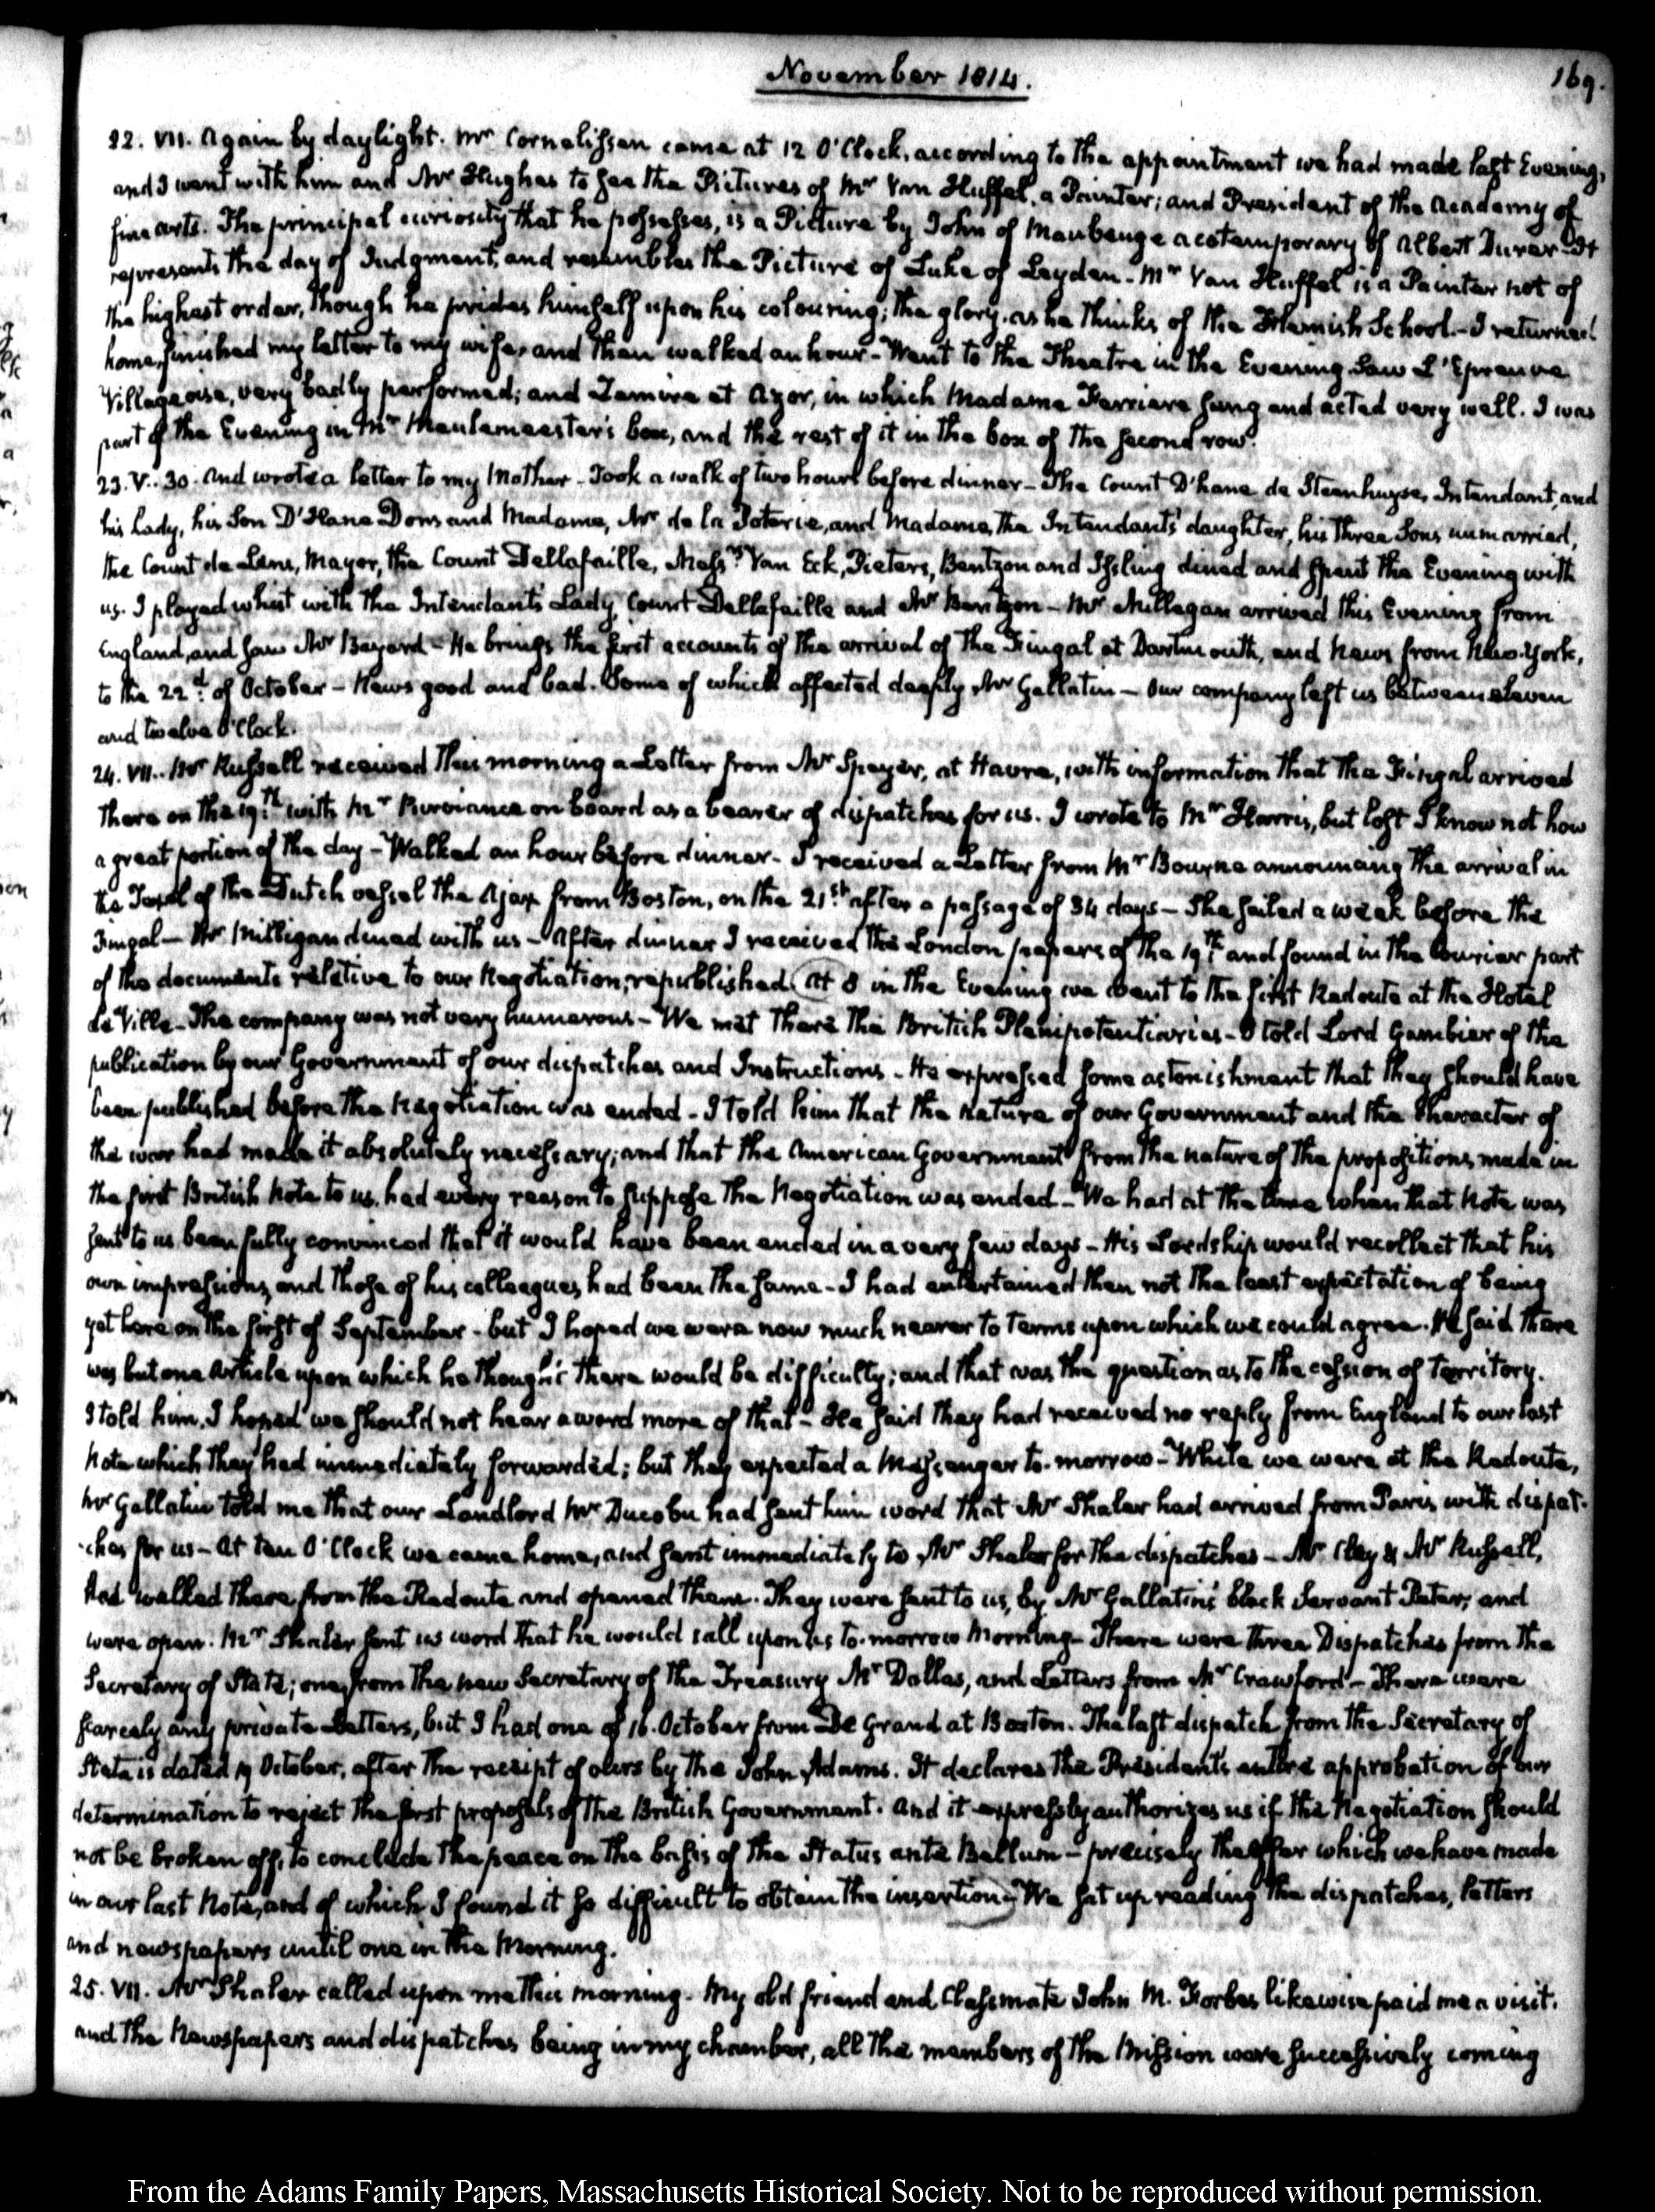 November 1814.
169.
22. VII. Again by daylight. Mr Cornelissen came at 12 O'Clock, according to the appointment we had made last Evening,
and I went with him and Mr Hughes to see the Pictures of Mr Van Huffel, a Painter; and President of the Academy of
fine arts. The principal curiosity that he possesses, is a Picture by John of Maubeuge a cotemporary of Albert Durer. It
represents the day of Judgment, and resembles the Picture of Luke of Leyden - Mr Van Huffel is a Painter not of
the highest order, though he prides himself upon his colouring; the glory, as he thinks of the Flemish School. - I returned
home, finished my letter to my wife, and then walked an hour - Went to the Theatre in the Evening. Saw L'Epreuve
Villageoise, very badly performed; and Zemire et Azor, in which Madame Ferriere sung and acted very well. I was
part of the Evening in Mr Meulemeester's box, and the rest of it in the box of the second row.
23. V. 30. And wrote a letter to my Mother - Took a walk of two hours before dinner - The Count D'hane de Steenhuyse, Intendant, and
his Lady, his Son D'Hane Dons and Madame, Mr de la Poterie, and Madame, the Intendant's daughter, his three Sons unmarried,
the Count de Lens, Mayor, the Count Dellafaille, Messrs Van Eck, Pieters, Bentzon and Ysling dined and spent the Evening with
us. I played whist with the Intendant's Lady, Count Dellafaille and Mr Bentzon - Mr Millegan arrived this Evening from
England, and saw Mr Bayard - He brings the first accounts of the arrival of the Fingal at Dartmouth, and news from New-York,
to the 22d of October - News good and bad. Some of which affected deeply Mr Gallatin - Our company left us between eleven
and twelve O'Clock.
24. VII. Mr Russell received this morning a Letter from Mr Speyer, at Havre, with information that the Fingal arrived
there on the 19th with Mr Purviance on board as a bearer of dispatches for us. I wrote to Mr Harris, but lost I know not how
a great portion of the day - Walked an hour before dinner - I received a Letter from Mr Bourne announcing the arrival in
the Texel of the Dutch vessel the Ajax from Boston, on the 21st after a passage of 34 days - She sailed a week before the
Fingal - Mr Milligan dined with us - After dinner I received the London papers of the 19th and found in the Courier part
of the documents relative to our Negotiation, republished. At 8 in the Evening we went to the first Redoute at the Hotel
de Ville - The company was not very numerous - We met there the British Plenipotentiaries - I told Lord Gambier of the
publication by our Government of our dispatches and Instructions - He expressed some astonishment that they should have
been published before the Negotiation was ended - I told him that the nature of our Government and the character of
the war had made it absolutely necessary; and that the American Government from the nature of the propositions made in
the first British Note to us, had every reason to suppose the Negotiation was ended - We had at the time when that Note was
sent to us been fully convinced that it would have been ended in a very few days - His Lordship would recollect that his
own impressions, and those of his colleagues had been the same - I had entertained then not the least expectation of being
yet here on the first of September - but I hoped we were now much nearer to terms upon which we could agree. He said there
was but one Article upon which he thought there would be difficulty; and that was the question as to the cession of territory.
I told him, I hoped we should not hear a word more of that - He said they had received no reply from England to our last
Note which they had immediately forwarded; but they expected a Messenger to-morrow - While we were at the Redoute,
Mr Gallatin told me that our Landlord Mr Ducobu had sent him word that Mr Shaler had arrived from Paris with dispat-
-ches for us - At ten O'Clock we came home, and sent immediately to Mr Shaler for the dispatches - Mr Clay & Mr Russell,
had walked there from the Redoute and opened them. They were sent to us, by Mr Gallatin's black Servant Peter; and
were open. Mr Shaler sent us word that he would call upon us to-morrow Morning - There were three Dispatches from the
Secretary of State; one from the new Secretary of the Treasury Mr Dallas, and Letters from Mr Crawford - There were
scarcely any private Letters, but I had one of 16. October from De Grand at Boston. The last dispatch from the Secretary of
State is dated 19 October, after the receipt of ours by the John Adams. It declares the President's entire approbation of our
determination to reject the first proposals of the British Government. And it expressly authorizes us if the Negotiation should
not be broken off, to conclude the peace on the basis of the Status ante Bellum - precisely the offer which we have made
in our last Note, and of which I found it so difficult to obtain the insertion - We sat up reading the dispatches, letters
and newspapers until one in the Morning.
25. VII. Mr Shaler called upon me this morning - My old friend and Classmate John M. Forbes likewise paid me a visit.
and the Newspapers and dispatches being in my chamber, all the members of the Mission were successively coming
From the Adams Family Papers, Massachusetts Historical Society. Not to be reproduced without permission.